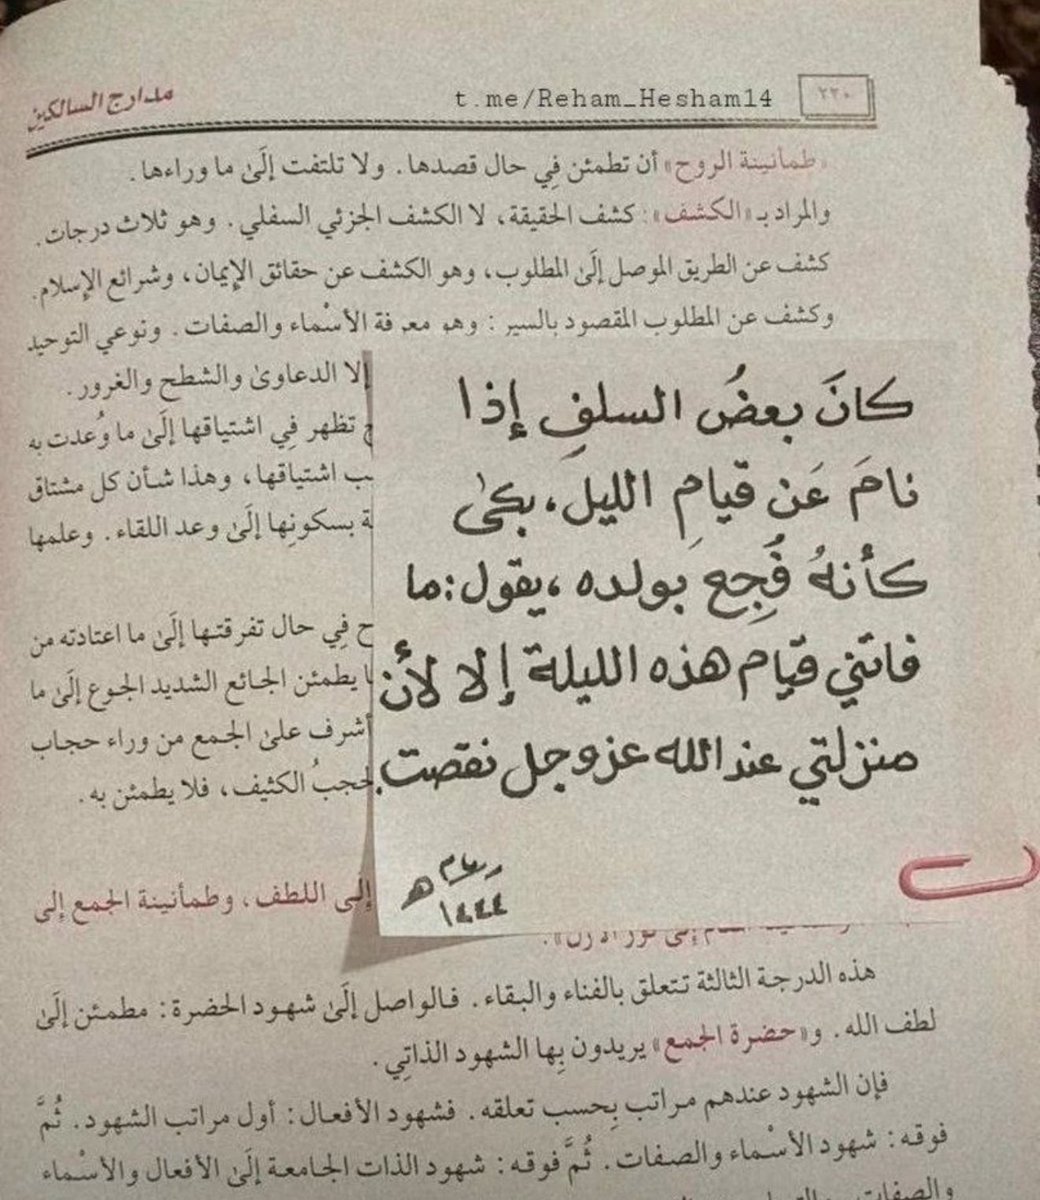 مدارج السالكين
t.me/Reham_Hesham14
٢٢٠
«طمأنينة الروح» أن تطمئن فِي حال قصدها. ولا تلتفت إلَىٰ ما وراءها.
والمراد بـ«الكشف»: كشف الحقيقة، لا الكشف الجزئي السفلي. وهو ثلاث درجات.
كشف عن الطريق الموصل إلَىٰ المطلوب، وهو الكشف عن حقائق الإيمان، وشرائع الإسلام.
وكشف عن المطلوب المقصود بالسير: وهو معرفة الأسْماء والصفات. ونوعي التوحيد
إلا الدعاوىٰ والشطح والغرور.
تظهر فِي اشتياقها إلَىٰ ما وُعدت به
اشتياقها، وهذا شأن كل مشتاق
بسكونِها إلَىٰ وعد اللقاء. وعلمها
فِي حال تفرقتها إلَىٰ ما اعتادته من
يطمئن الجائع الشديد الجوع إلَىٰ ما
أشرف علىٰ الجمع من وراء حجاب
الكثيف، فلا يطمئن به.
كانَ بعضُ السلفِ إذا
نامَ عَن قيامِ الليلِ، بكىٰ
كأنهُ فُجِعَ بولده، يقول: ما
فاتني قيام هذه الليلة إلا لأن
منزلتي عند الله عز وجل نقصت.
رهام
١٤٤٤ هـ
إلى اللطف، وطمأنينة الجمع إلى
هذه الدرجة الثالثة تتعلق بالفناء والبقاء. فالواصل إلَىٰ شهود الحضرة: مطمئن إلَىٰ
لطف الله. و«حضرة الجمع» يريدون بِها الشهود الذاتِي.
فإن الشهود عندهم مراتب بِحسب تعلقه. فشهود الأفعال: أول مراتب الشهود. ثُمَّ
فوقه: شهود الأسْماء والصفات. ثُمَّ فوقه: شهود الذات الجامعة إلَىٰ الأفعال والأسْماء
والصفات